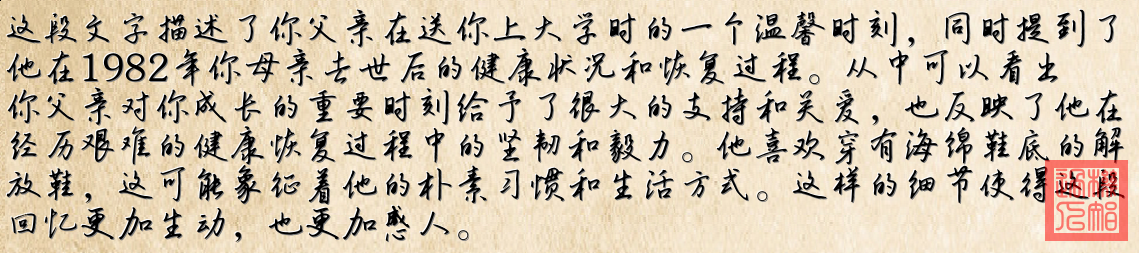 这段文字描述了你父亲在送你上大学时的一个温馨时刻，同时提到了
他在1982年你母亲去世后的健康状况和恢复过程。从中可以看出
你父亲对你成长的重要时刻给予了很大的支持和关爱，也反映了他在
经历艰难的健康恢复过程中的坚韧和毅力。他喜欢穿有海绵鞋底的解
放鞋，这可能象征着他的朴素习惯和生活方式。这样的细节使得这段
回忆更加生动，也更加感人。